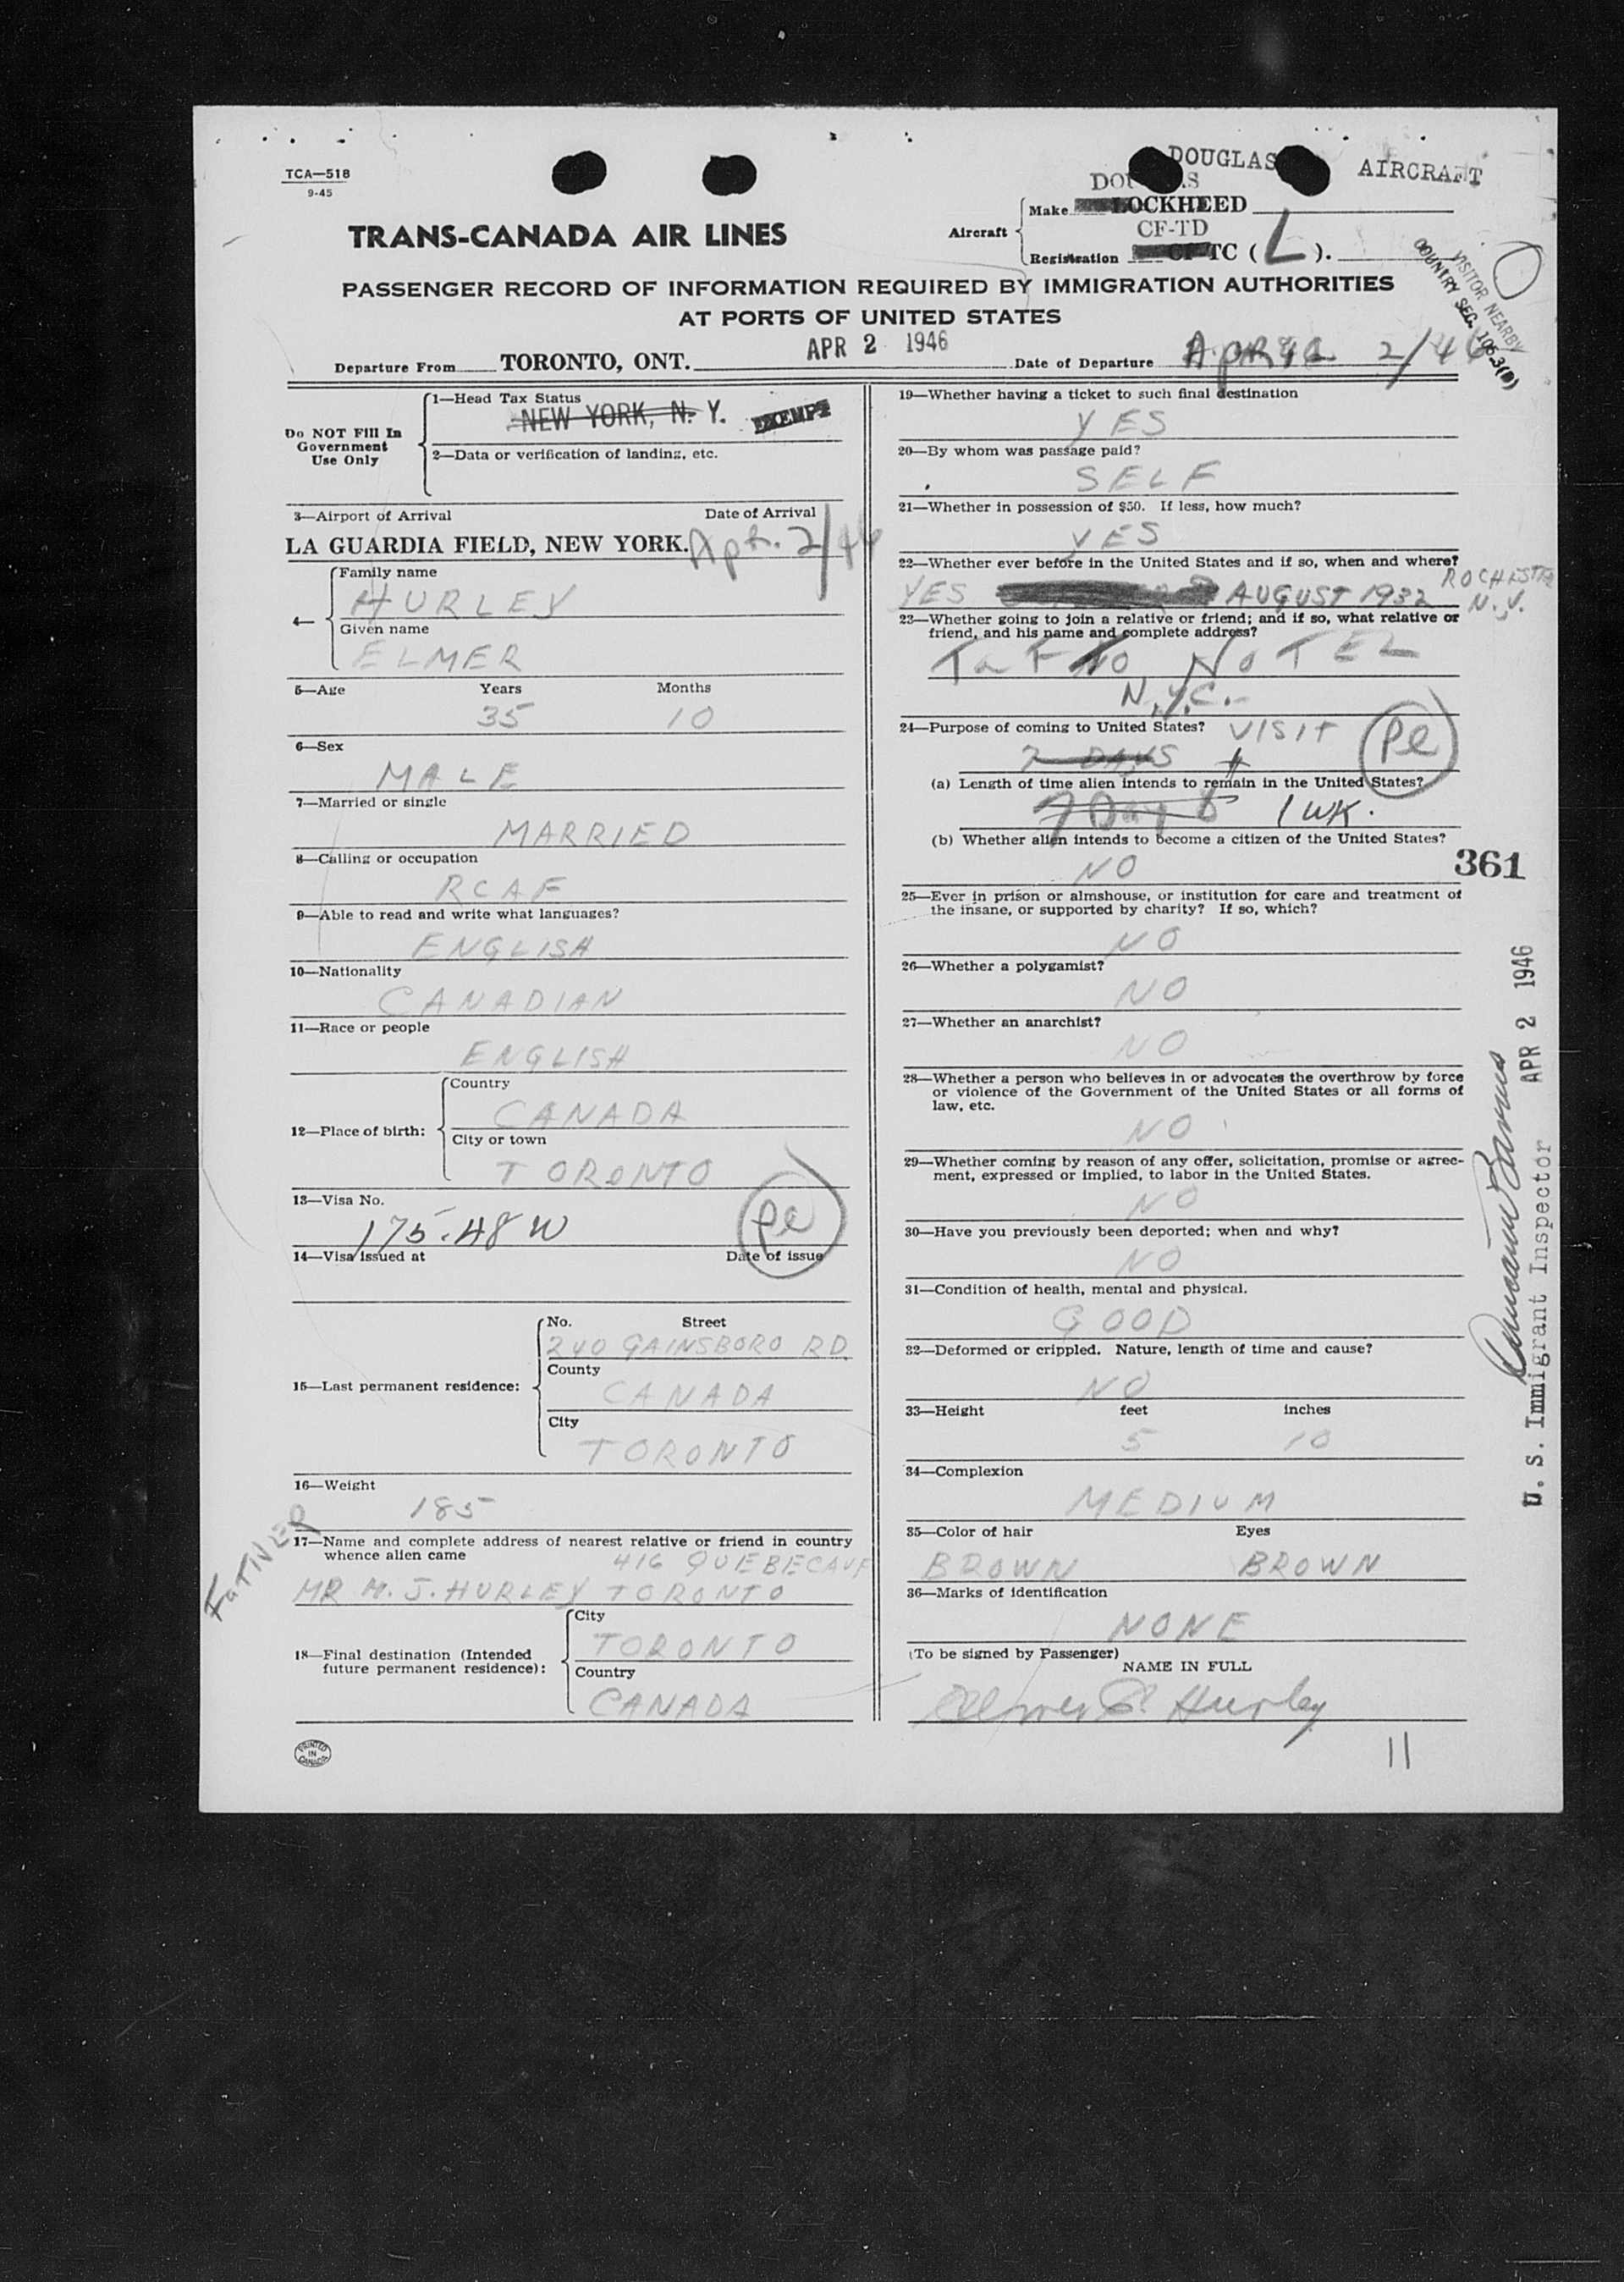 TCA—518
9-45
DOUGLAS AIRCRAFT
TRANS-CANADA AIR LINES
Aircraft
Make LOCKHEED
CF-TD
Registration CF-TC (L).
VISITOR NEARBY
COUNTRY SEC.
PASSENGER RECORD OF INFORMATION REQUIRED BY IMMIGRATION AUTHORITIES
AT PORTS OF UNITED STATES
APR 2 1946
Departure From TORONTO, ONT. Date of Departure April 2/46
Do NOT Fill In
Government
Use Only
1—Head Tax Status
NEW YORK, N. Y. EXEMPT
2—Data or verification of landing, etc.
3—Airport of Arrival Date of Arrival
LA GUARDIA FIELD, NEW YORK. Apr. 2/46
4—
Family name
HURLEY
Given name
ELMER
5—Age Years Months
35 10
6—Sex
MALE
7—Married or single
MARRIED
8—Calling or occupation
RCAF
9—Able to read and write what languages?
ENGLISH
10—Nationality
CANADIAN
11—Race or people
ENGLISH
12—Place of birth:
Country
CANADA
City or town
TORONTO
13—Visa No.
175.48 W
pe
14—Visa issued at Date of issue
15—Last permanent residence:
No. Street
240 GAINSBORO RD
County
CANADA
City
TORONTO
16—Weight
185
FATHER
17—Name and complete address of nearest relative or friend in country
whence alien came
416 QUEBEC AVE
MR M. J. HURLEY TORONTO
18—Final destination (Intended
future permanent residence):
City
TORONTO
Country
CANADA
PRINTED
IN
CANADA
19—Whether having a ticket to such final destination
YES
20—By whom was passage paid?
SELF
21—Whether in possession of $50. If less, how much?
YES
22—Whether ever before in the United States and if so, when and where?
YES AUGUST 1932 ROCHESTER
N.Y.
23—Whether going to join a relative or friend; and if so, what relative or
friend, and his name and complete address?
NO HOTEL
N.Y.C.
24—Purpose of coming to United States? VISIT
7 DAYS
pe
(a) Length of time alien intends to remain in the United States?
7 Days 1 WK.
(b) Whether alien intends to become a citizen of the United States?
NO
361
25—Ever in prison or almshouse, or institution for care and treatment of
the insane, or supported by charity? If so, which?
NO
26—Whether a polygamist?
NO
27—Whether an anarchist?
NO
28—Whether a person who believes in or advocates the overthrow by force
or violence of the Government of the United States or all forms of
law, etc.
NO
29—Whether coming by reason of any offer, solicitation, promise or agree-
ment, expressed or implied, to labor in the United States.
NO
30—Have you previously been deported; when and why?
NO
31—Condition of health, mental and physical.
GOOD
32—Deformed or crippled. Nature, length of time and cause?
NO
33—Height feet inches
5 10
34—Complexion
MEDIUM
35—Color of hair Eyes
BROWN BROWN
36—Marks of identification
NONE
(To be signed by Passenger)
NAME IN FULL
Elmer Hurley
11
U. S. Immigrant Inspector APR 2 1946